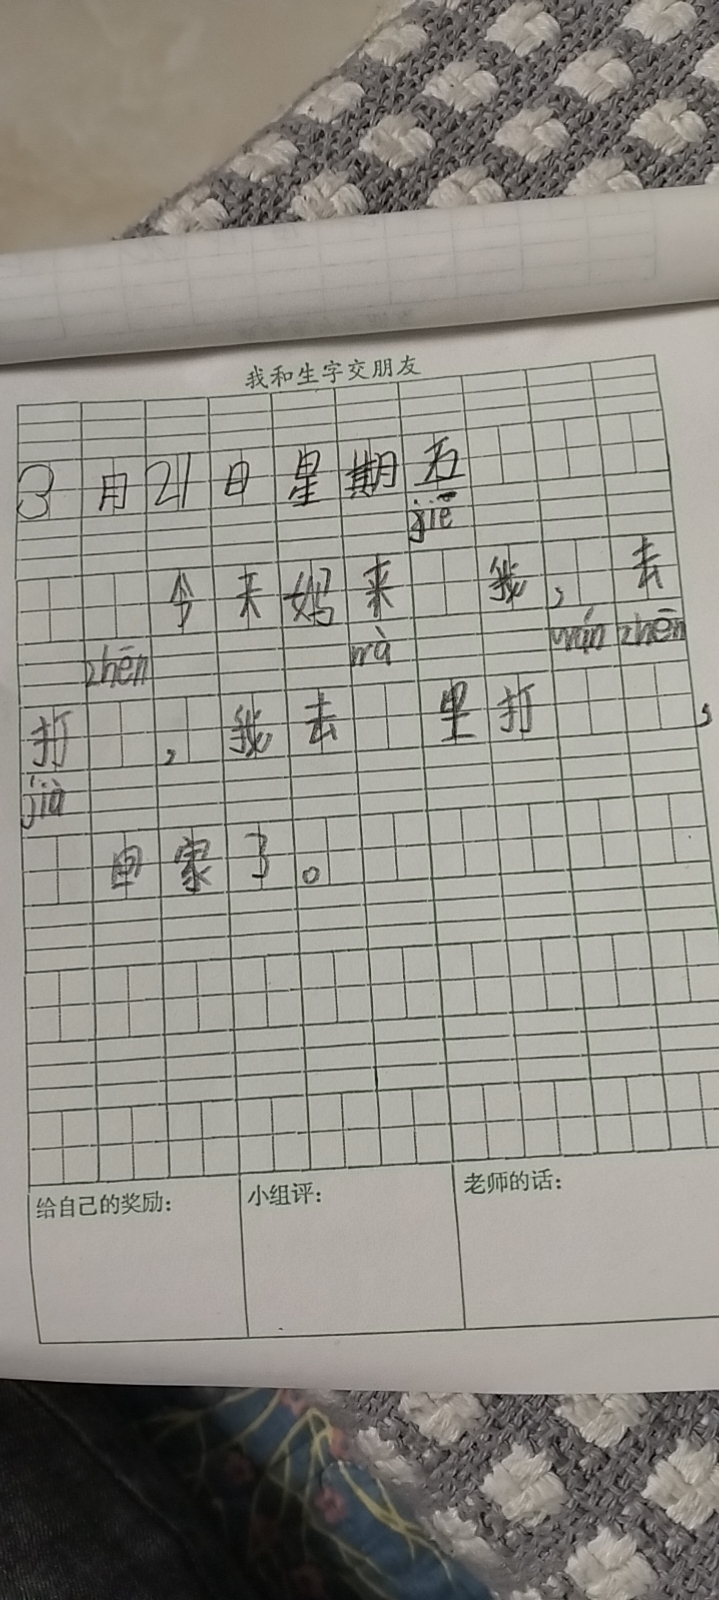 我和生字交朋友
3月21日星期五
jiē
今天妈来 我，去
zhēn nà wán zhēn
打 ，我去 里打 ，
jiù
回家了。
给自己的奖励：
小组评：
老师的话：